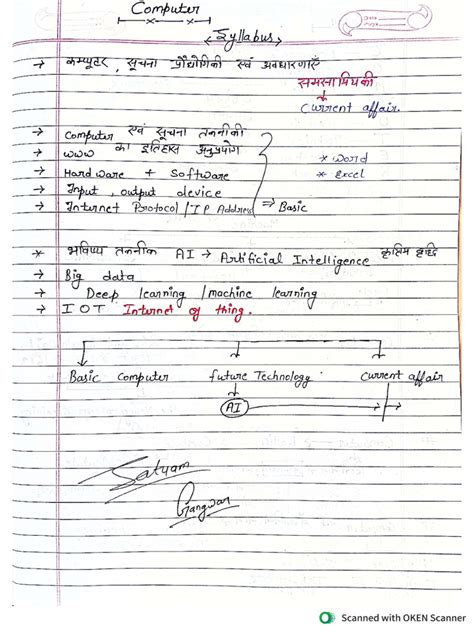 Computer
Syllabus
→ कम्प्यूटर, सूचना प्रौद्योगिकी एवं अवधारणाएँ
समसामियिकी
Current affair
→ Computer एवं सूचना तकनीकी
→ www का इतिहास अनुप्रयोग
* Word
→ Hardware + Software
* Excel
→ Input, output device
→ Internet Protocol / IP Address ⇒ Basic
* भविष्य तकनीक AI → Artificial Intelligence कृत्रिम बुद्धि
→ Big data
→ Deep learning / machine learning
→ IOT Internet of thing.
Basic Computer future Technology Current affair
AI
Satyam
Gangwar
Scanned with OKEN Scanner